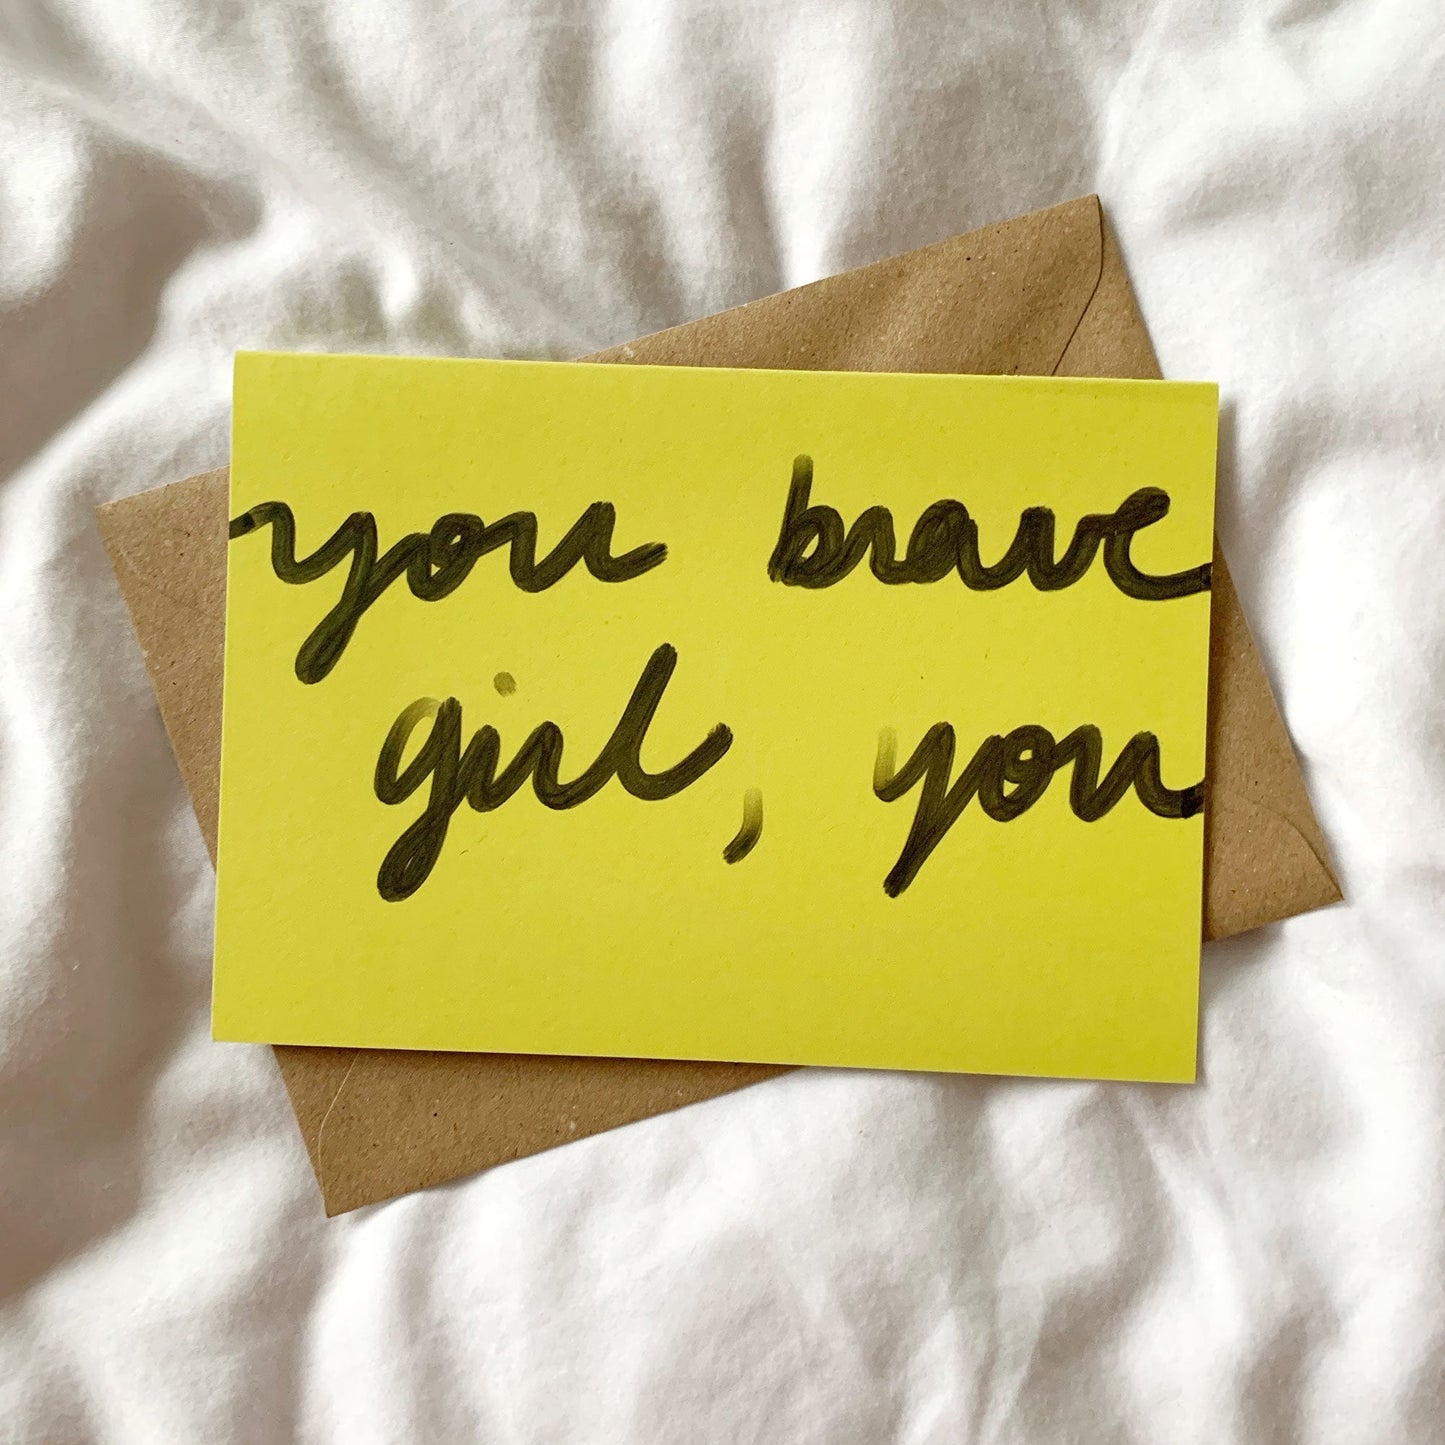 you brave
girl, you